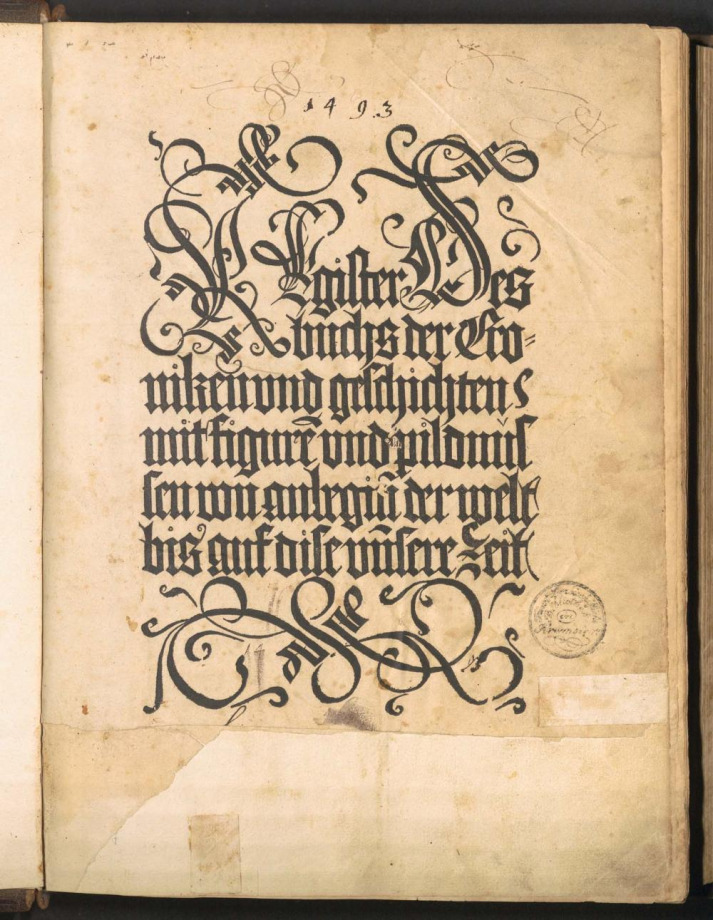 1493
REgister Des
buchs der Cro-
niken und geschichten
mit figurẽ und pildnüs
sen von anbegiñ der welt
bis auf dise uñsere Zeit